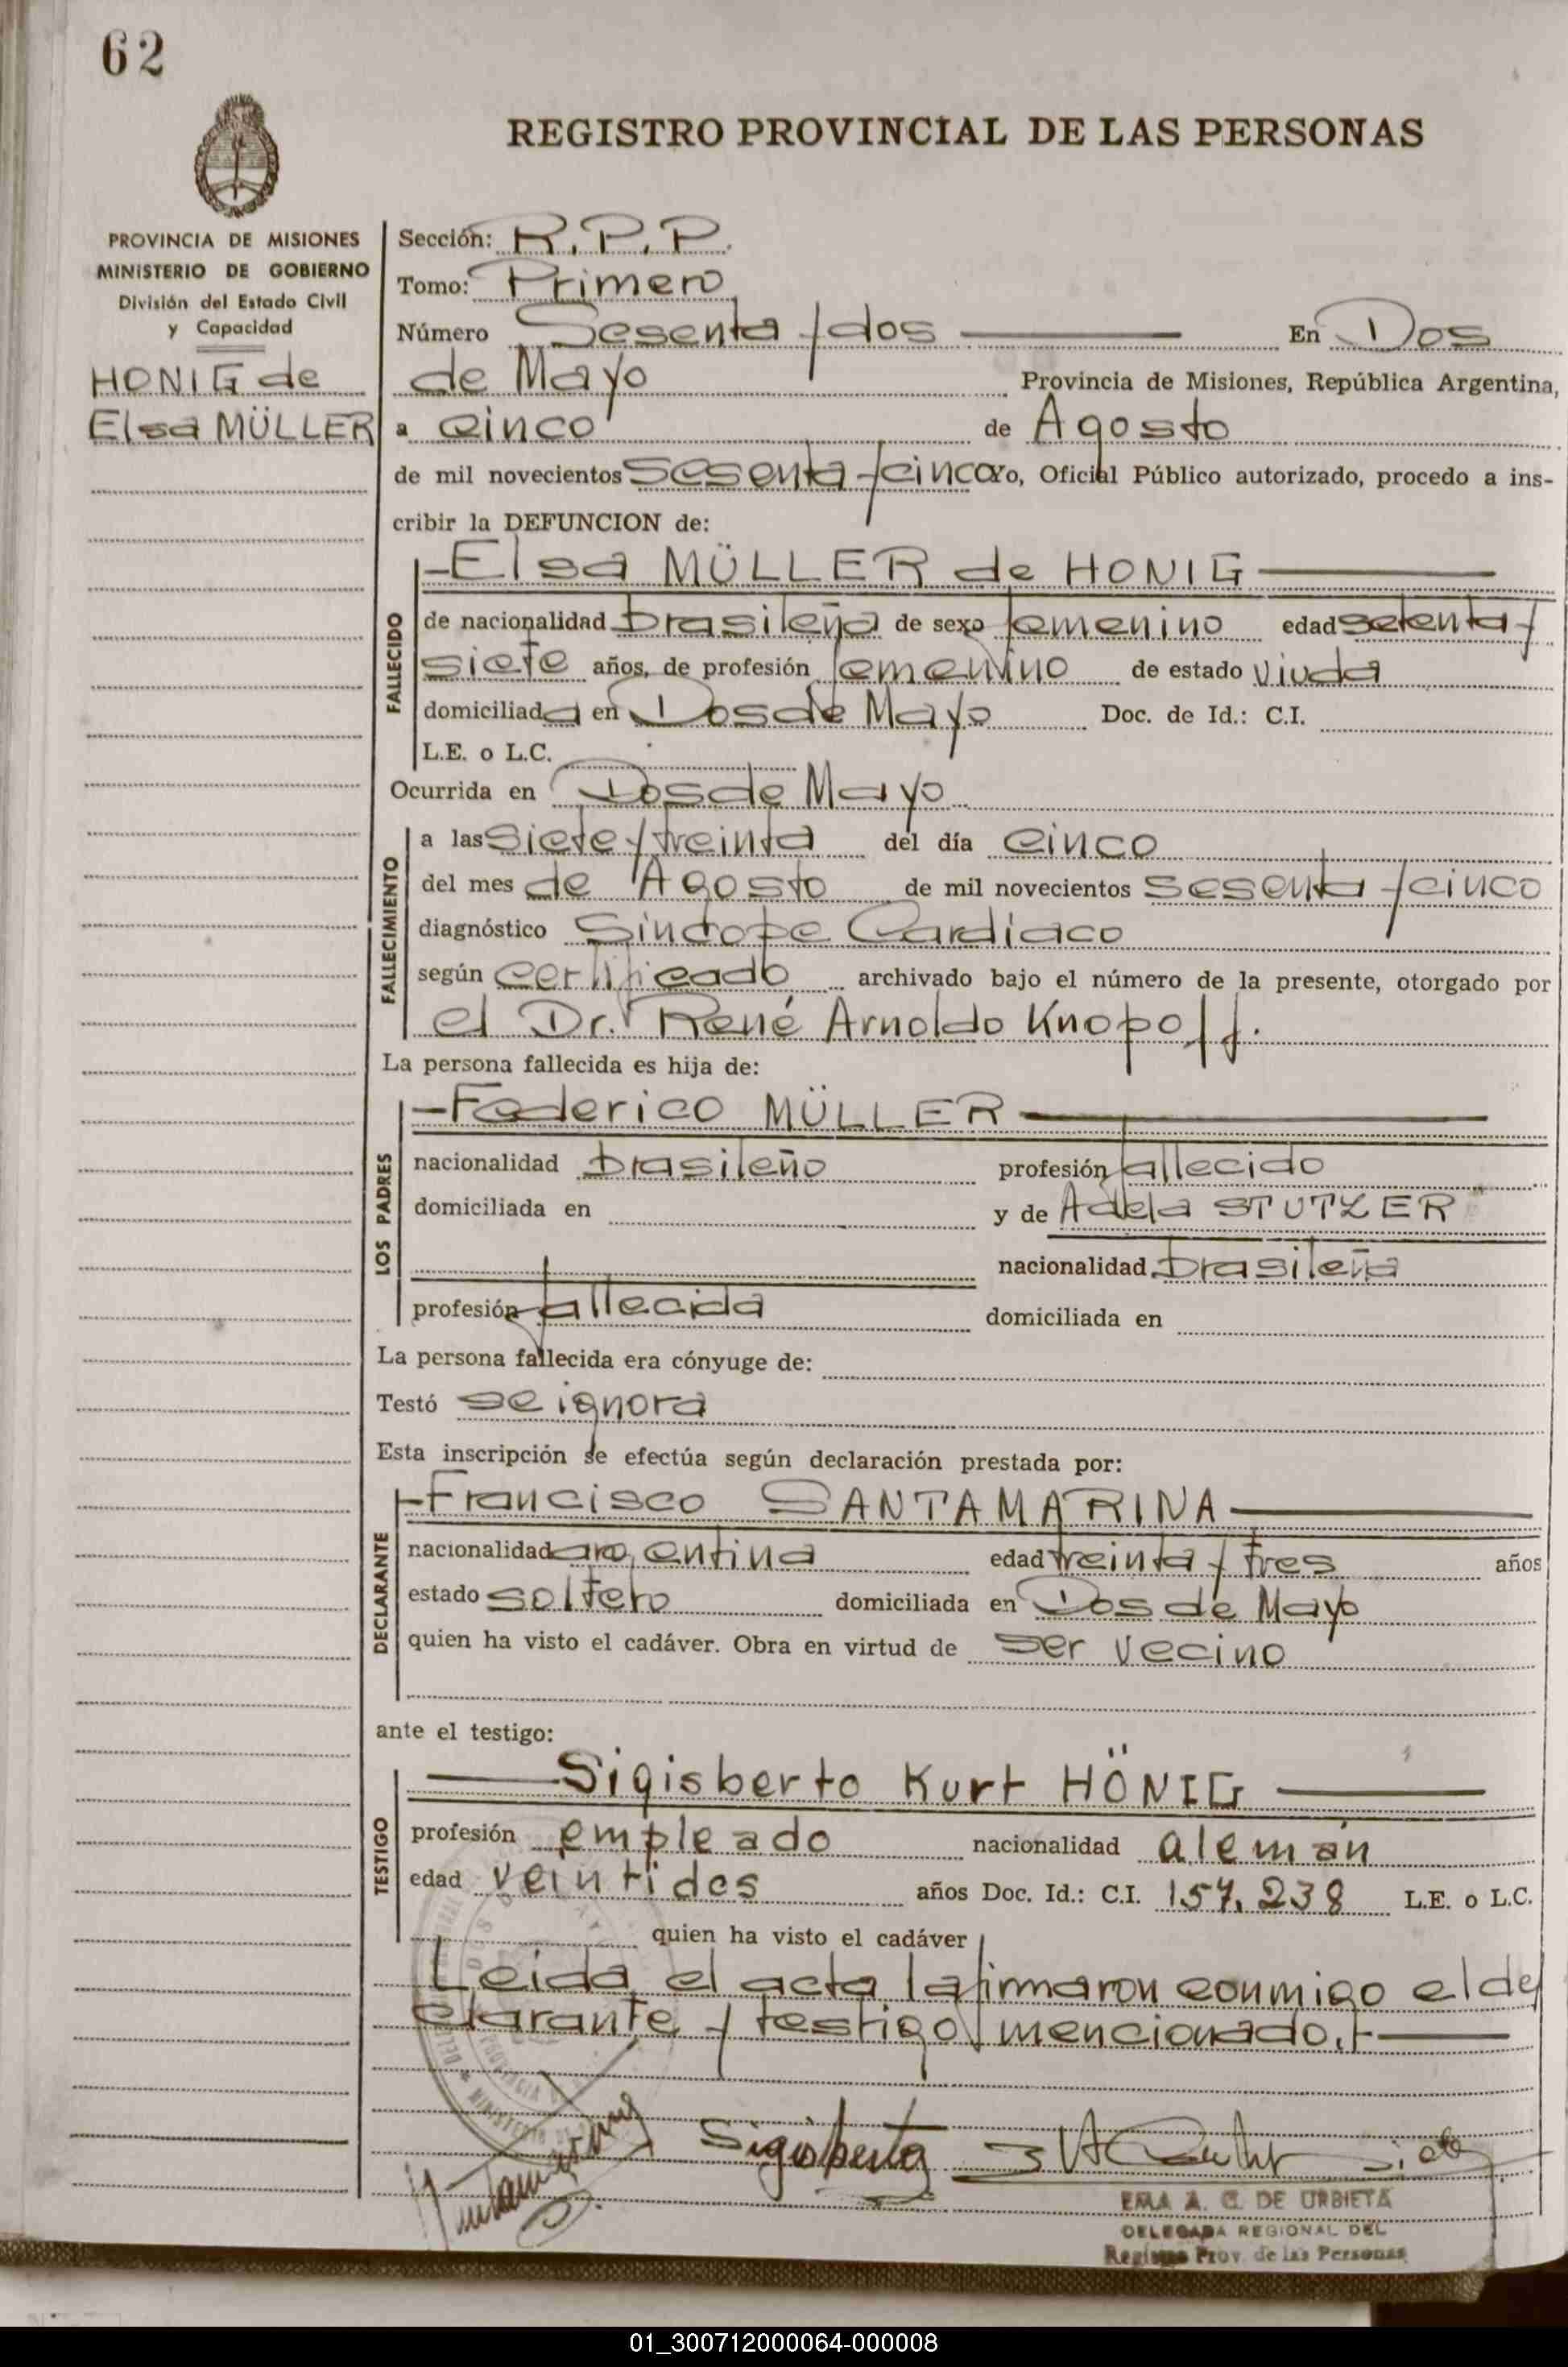 62
REGISTRO PROVINCIAL DE LAS PERSONAS
PROVINCIA DE MISIONES
MINISTERIO DE GOBIERNO
División del Estado Civil
y Capacidad
HONIG de
Elsa MÜLLER
Sección: R.P.P.
Tomo: Primero
Número Sesenta y dos En Dos
de Mayo Provincia de Misiones, República Argentina,
a cinco de Agosto
de mil novecientos sesenta y cinco Yo, Oficial Público autorizado, procedo a ins-
cribir la DEFUNCION de:
FALLECIDO
Elsa MÜLLER de HONIG
de nacionalidad brasileña de sexo femenino edad setenta y
siete años, de profesión femenino de estado viuda
domiciliada en Dos de Mayo Doc. de Id.: C.I.
L.E. o L.C.
Ocurrida en Dos de Mayo
FALLECIMIENTO
a las siete y treinta del día cinco
del mes de Agosto de mil novecientos sesenta y cinco
diagnóstico Sincope Cardiaco
según certificado archivado bajo el número de la presente, otorgado por
el Dr. René Arnoldo Knopoff.
La persona fallecida es hija de:
LOS PADRES
Federico MÜLLER
nacionalidad brasileño profesión fallecido
domiciliada en y de Adela STUTZER
nacionalidad brasileña
profesión fallecida domiciliada en
La persona fallecida era cónyuge de:
Testó se ignora
Esta inscripción se efectúa según declaración prestada por:
DECLARANTE
Francisco SANTAMARINA
nacionalidad argentina edad treinta y tres años
estado soltero domiciliada en Dos de Mayo
quien ha visto el cadáver. Obra en virtud de ser vecino
ante el testigo:
TESTIGO
Sigisberto Kurt HÖNIG
profesión empleado nacionalidad alemán
edad veintidos años Doc. Id.: C.I. 157.238 L.E. o L.C.
quien ha visto el cadáver
Leida el acta la firmaron conmigo el de
clarante y testigo mencionado.
Sigisberto
EMA A. C. DE URBIETA
DELEGADA REGIONAL DEL
Registro Prov. de las Personas
01_300712000064-000008